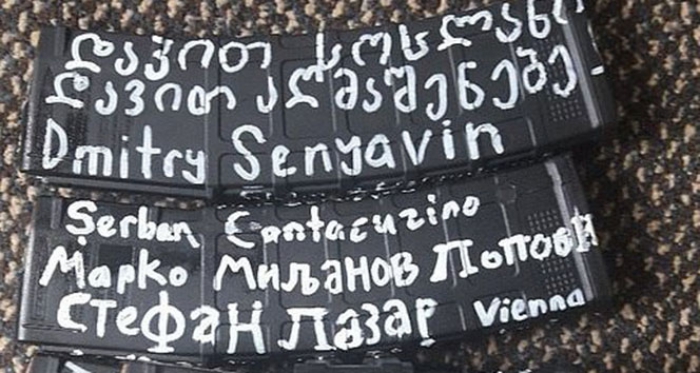 დავით სოსლანი
დავით აღმაშენებე
Dmitry Senyavin
Şerban Cantacuzino
Марко Миљанов Попови
Стефан Лазар Vienna